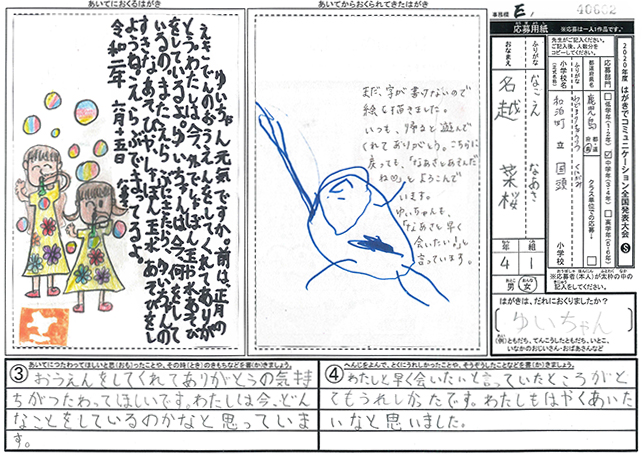 あいてにおくるはがき
ゆいちゃん元気ですか。前は正月の
えきでんのおうえんをしてくれてありが
とう。わたしは今、外でしゃぼん玉や水あそび
をしているよ。ゆいちゃんは今何をして
いるの。またえらぶにきたら、ゆいちゃんの
すきなあそびや、しゃぼん玉、水あそびをし
ようね。えらぶでまってるよ。
令和二年 六月十五日
あいてからおくられてきたはがき
まだ、字が書けないので
絵を描きました。
いつも、帰ると遊んで
くれてありがとう。こちらに
戻っても、「なあさとあそんだ
ね♡」とよろこんで
います。
ゆいちゃんも、
「なあさと早く
会いたい」と
言っています。
事務欄 E, 40602
応募用紙 ※応募は一人1作品です。
先生がご記入ください。
ご記入後、人数分を
コピーしてください。
2020年度 はがきでコミュニケーション全国発表大会 S
応募部門
□低学年(1・2年)
☑中学年(3・4年)
□高学年(5・6年)
都道府県名
鹿児島
クラス単位での応募↓
小学校名
和泊町 立 国頭
小学校
ふりがな
なごえ なあさ
おなまえ
名越 菜桜
年 4
組 1
男 女
※応募者(本人)が太枠の中の
記入をしてください。
はがきは、だれにおくりましたか?
ゆいちゃん
(例)ともだち、てんこうしたともだち、いとこ、
いなかのおじいさん・おばあさんなど
③ あいてにつたわってほしいと思(おも)ったことや、その時(とき)のきもちなどを書(か)きましょう。
おうえんをしてくれてありがとうの気持
ちがつたわってほしいです。わたしは今、どん
なことをしているのかなと思っていま
す。
④ へんじをよんで、とくにうれしかったことや、そうぞうしたことなどを書(か)きましょう。
わたしと早く会いたいと言っていたところがと
てもうれしかったです。わたしもはやくあいた
いなと思いました。